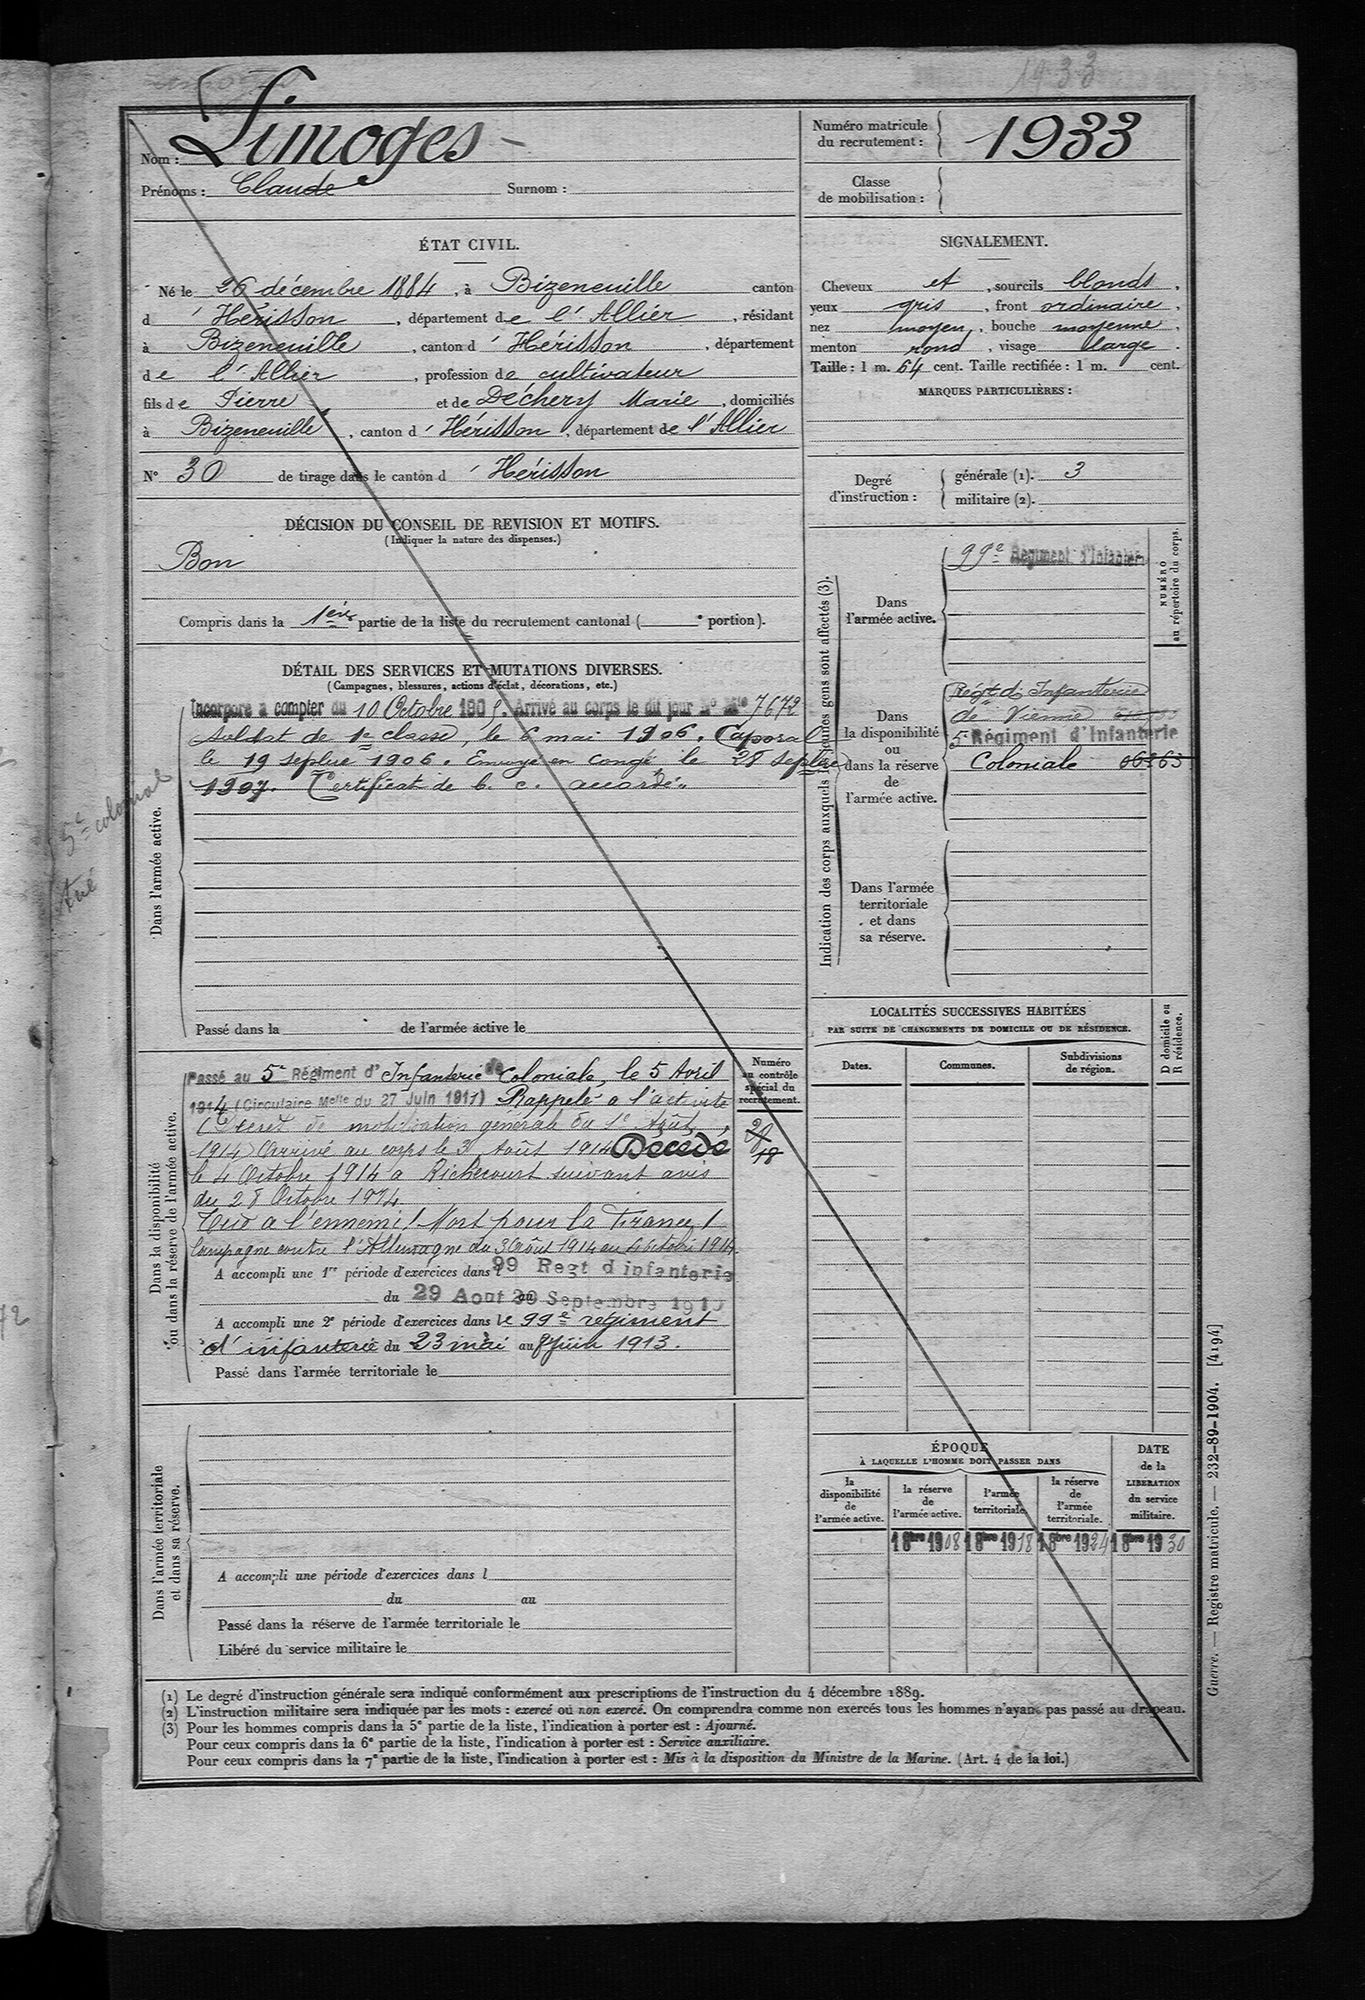 1933
Limoges
Nom :
Prénoms : Claude Surnom :
Numéro matricule du recrutement : 1933
Classe de mobilisation :
ÉTAT CIVIL.
Né le 26 décembre 1884, à Bizeneuille canton
d'Hérisson, département de l'Allier, résidant
à Bizeneuille, canton d'Hérisson, département
de l'Allier, profession de cultivateur
fils de Pierre et de Déchery Marie, domiciliés
à Bizeneuille, canton d'Hérisson, département de l'Allier
N° 30 de tirage dans le canton d'Hérisson
DÉCISION DU CONSEIL DE REVISION ET MOTIFS.
(Indiquer la nature des dispenses.)
Bon
Compris dans la 1ère partie de la liste du recrutement cantonal ( e portion).
SIGNALEMENT.
Cheveux et, sourcils blonds,
yeux gris, front ordinaire,
nez moyen, bouche moyenne,
menton rond, visage large.
Taille : 1 m. 64 cent. Taille rectifiée : 1 m. cent.
MARQUES PARTICULIÈRES :
Degré d'instruction :
générale (1). 3
militaire (2).
DÉTAIL DES SERVICES ET MUTATIONS DIVERSES.
(Campagnes, blessures, actions d'éclat, décorations, etc.)
Dans l'armée active.
Incorporé à compter du 10 Octobre 1905. Arrivé au corps le dit jour No Mle 7672
Soldat de 1e classe, le 6 mai 1906. Caporal
le 19 septbre 1906. Envoyé en congé le 28 septbre
1907. Certificat de b. c. accordé.
5e colonial
tué
Passé dans la de l'armée active le
Indication des corps auxquels les jeunes gens sont affectés (3).
NUMÉRO au répertoire du corps.
Dans l'armée active.
99e Régiment d'Infanterie
Dans la disponibilité ou dans la réserve de l'armée active.
Régt d'Infanterie
de Vienne
5e Régiment d'Infanterie
Coloniale 06263
Dans l'armée territoriale et dans sa réserve.
LOCALITÉS SUCCESSIVES HABITÉES
PAR SUITE DE CHANGEMENTS DE DOMICILE OU DE RÉSIDENCE.
Dates. Communes. Subdivisions de région. D domicile ou R résidence.
Dans la disponibilité ou dans la réserve de l'armée active.
Numéro au contrôle spécial du recrutement.
18
Passé au 5e Régiment d'Infanterie Coloniale, le 5 Avril
1914 (Circulaire Melle du 27 Juin 1911) Rappelé à l'activité
(Décret de mobilisation générale du 1er Août
1914) Arrivé au corps le 3 Août 1914 Décédé
le 4 Octobre 1914 à Richecourt suivant avis
du 28 Octobre 1914
Tué à l'ennemi ! Mort pour la France !
Campagne contre l'Allemagne du 3 Août 1914 au 4 Octobre 1914.
A accompli une 1re période d'exercices dans l 99 Regt d infanterie
du 29 Aout au 20 Septembre 191
A accompli une 2e période d'exercices dans le 99e régiment
d'infanterie du 23 mai au 8 juin 1913.
Passé dans l'armée territoriale le
Dans l'armée territoriale et dans sa réserve.
A accompli une période d'exercices dans l
du au
Passé dans la réserve de l'armée territoriale le
Libéré du service militaire le
ÉPOQUE
À LAQUELLE L'HOMME DOIT PASSER DANS
la disponibilité de l'armée active. la réserve de l'armée active. l'armée territoriale. la réserve de l'armée territoriale.
DATE de la LIBÉRATION du service militaire.
1 8bre 1908 1 8bre 1918 1 8bre 1924 1 8bre 1930
(1) Le degré d'instruction générale sera indiqué conformément aux prescriptions de l'instruction du 4 décembre 1889.
(2) L'instruction militaire sera indiquée par les mots : exercé ou non exercé. On comprendra comme non exercés tous les hommes n'ayant pas passé au drapeau.
(3) Pour les hommes compris dans la 5e partie de la liste, l'indication à porter est : Ajourné.
Pour ceux compris dans la 6e partie de la liste, l'indication à porter est : Service auxiliaire.
Pour ceux compris dans la 7e partie de la liste, l'indication à porter est : Mis à la disposition du Ministre de la Marine. (Art. 4 de la loi.)
Guerre. — Registre matricule. — 232-89-1904. [4194]